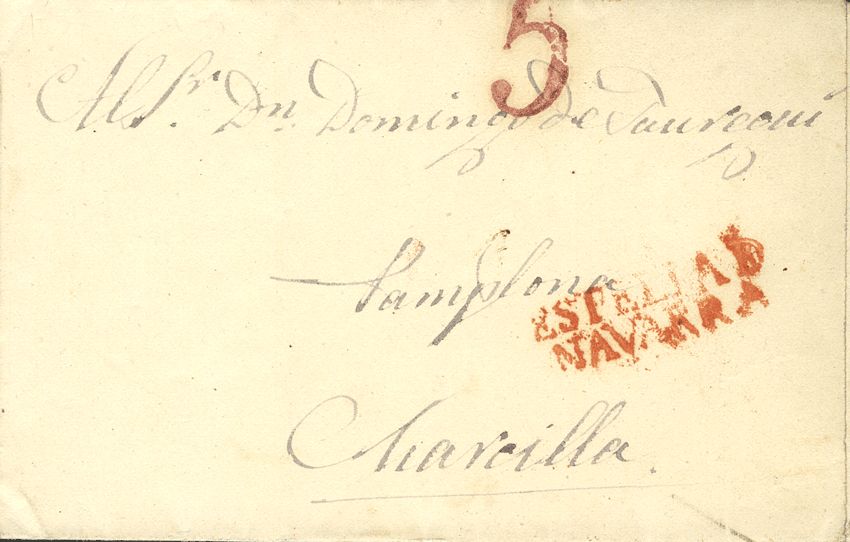 5
Al Sr. Dn. Domingo de
Pamplona
ESTELLA D
NAVARRA
Marcilla.